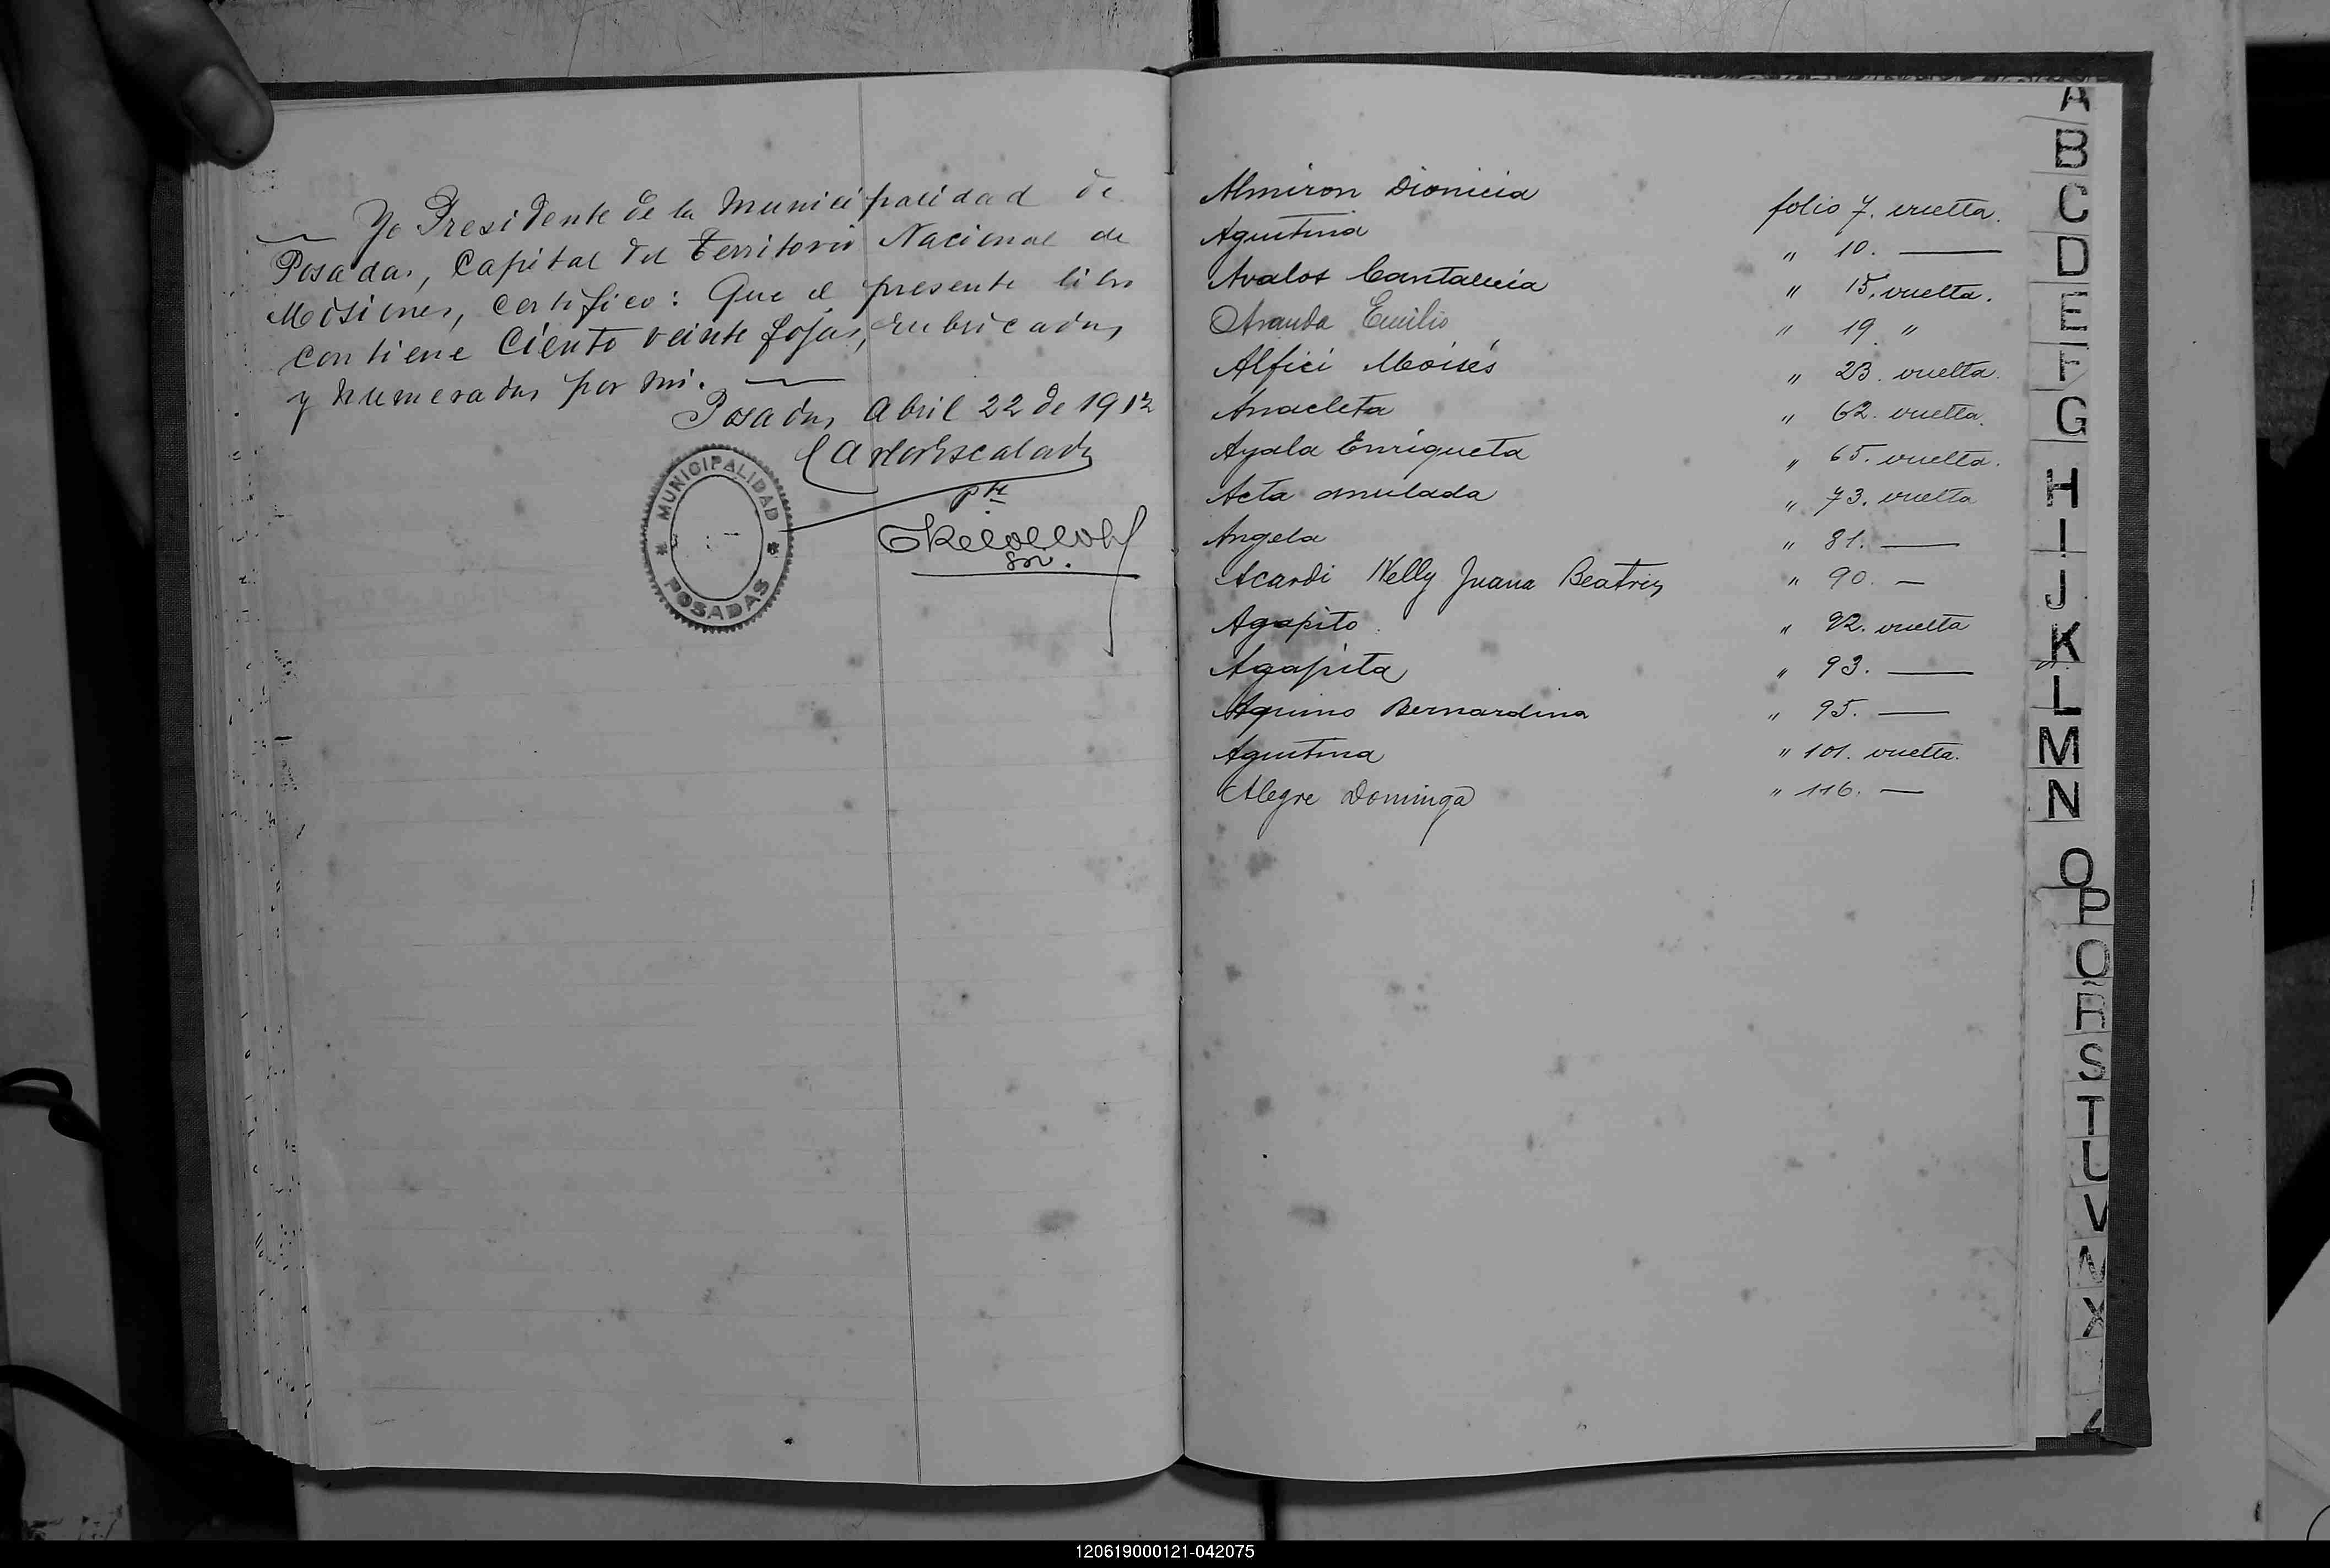 Yo Presidente de la Municipalidad de
Posadas, Capital del Territorio Nacional de
Misiones, certifico: Que el presente libro
contiene Ciento veinte fojas, rubricadas
y numeradas por mi.
Posadas Abril 22 de 1912
Pte
MUNICIPALIDAD
POSADAS
Almiron Dionicia folio 7. vuelta.
Agustina " 10. —
Avalos Cantalicia " 15. vuelta.
Aranda Emilio " 19 "
Alfici Moisés " 23. vuelta.
Anacleta " 62. vuelta.
Ayala Enriqueta " 65. vuelta.
Acta anulada " 73. vuelta
Angela " 81. —
Acardi Nelly Juana Beatriz " 90. —
Agapito " 92. vuelta
Agapita " 93. —
Aquino Bernardina " 95. —
Agustina " 101. vuelta.
Alegre Dominga " 116. —
A
B
C
D
E
F
G
H
I
J
K
L
M
N
O
P
Q
R
S
T
U
V
X
120619000121-042075